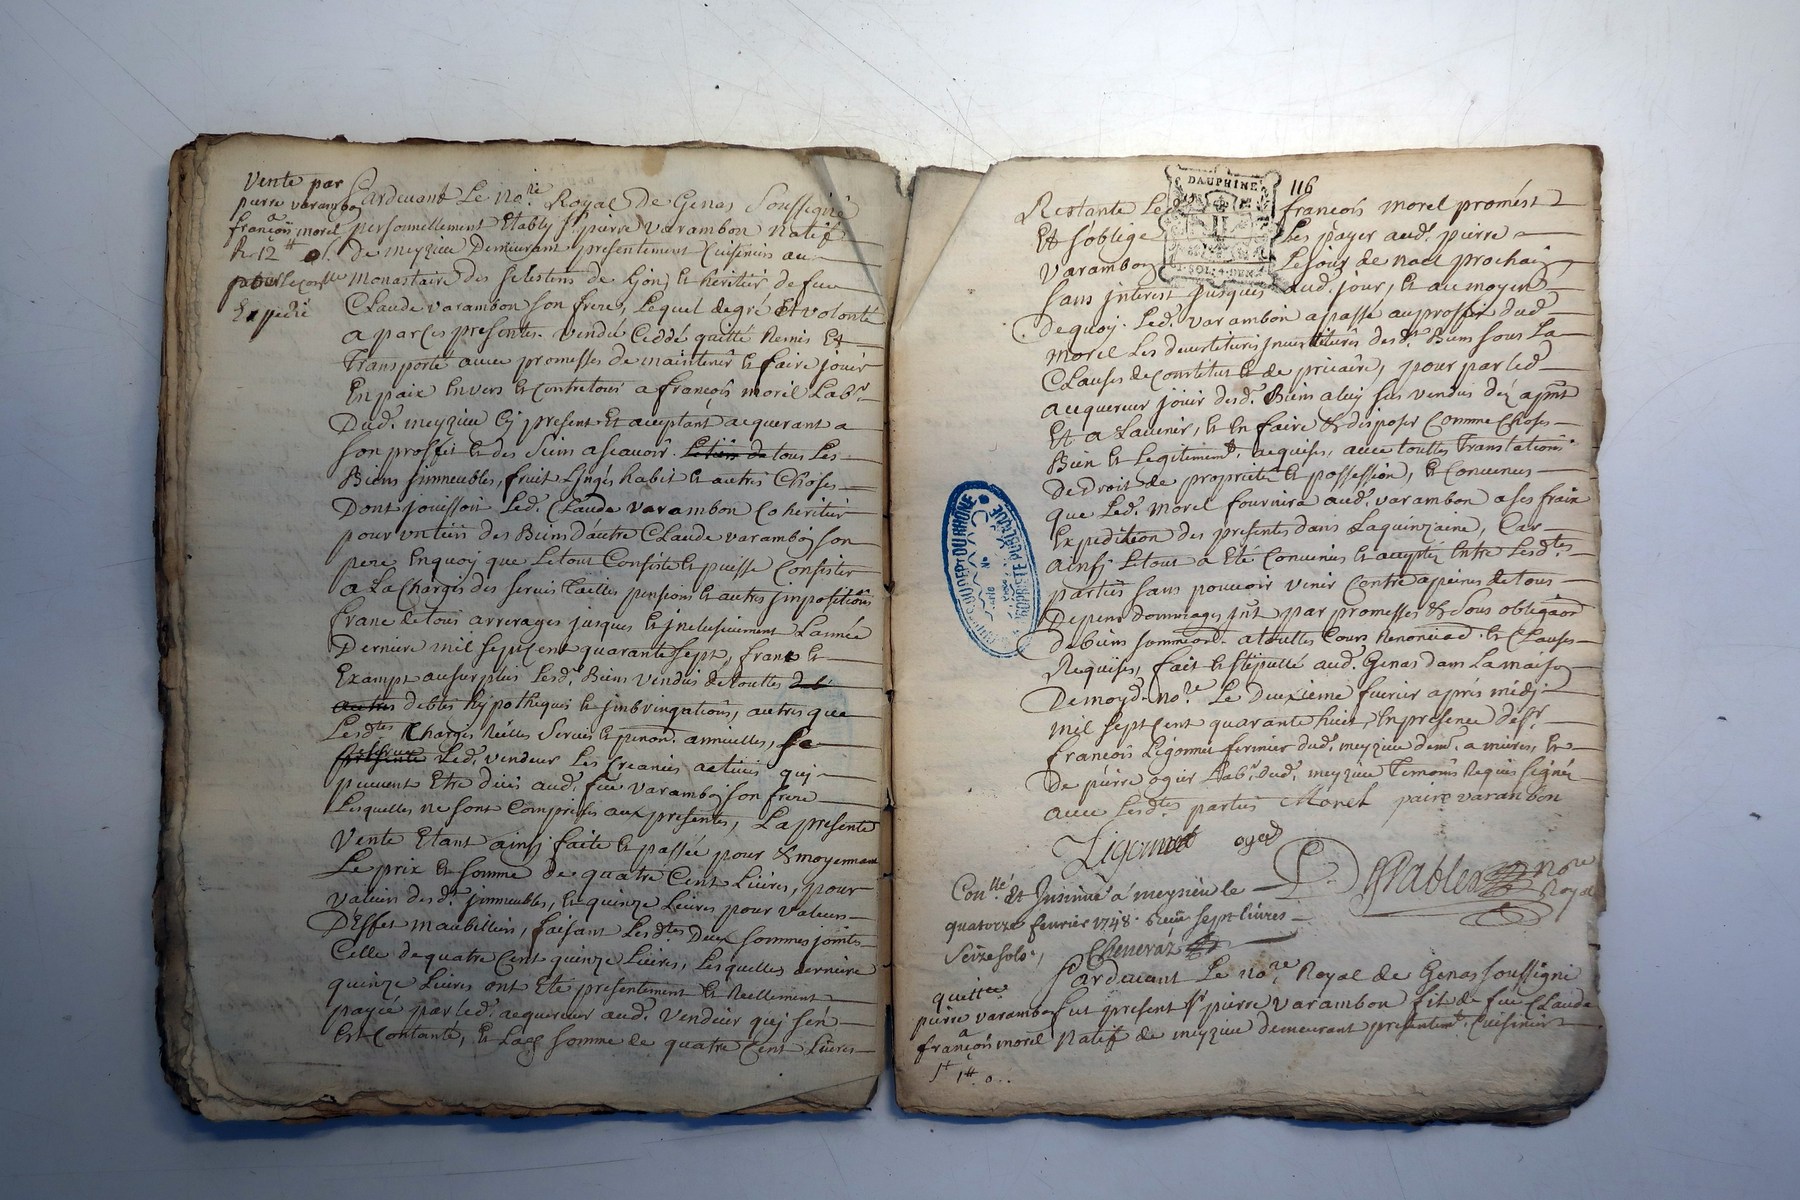 Vente par
pierre varambon
a
françois morel
R. 12 tt
Expedié
Pardevant Le No.re Royal De Genas Soussigné
personnellement Etably Sr pierre varambon Natif
de meyzieu Demeurant presentement Cuisinier au
Monastaire des selestins de Lion, et heritier de feu
Claude varambon son frere, Lequel de gré et volonté
a par ces presentes. vendu Ceddé quitté Remis Et
Transporté avec promesses de maintenir et faire jouir
En paix Envers et contre tous a françois morel Lab.r
Dud. meyzieu Cy present et acceptant acquerant a
son proffit et des Siens ascavoir. tous Les
Biens jmmeubles, fruit Linges habit et autres Choses
Dont jouissoit Led. Claude varambon Coheritier
pour un tiers des Biens d'autre Claude varambon son
pere Enquoy que Le tout Consiste et puisse Consister
a La Charges des servis Tailles pensions et autres jmpositions
franc de tous arrerages jusques et jnclusivement L'année
Derniere mil sept cent quarante sept, franc et
Exampt au surplus Lesd. Biens vendus de touttes
autres debtes hypotheques et jmbringations, autres que
Lesd.tes Charges Réelles Servis et pension. annuelles, se
Led. vendeur Les Creances actives quj
peuvent Etre dues aud. feu varambon son frere
Lesquelles ne sont Comprises aux presentes, La presente
Vente Etant ainsj faite et passée pour & moyennant
Le prix et somme de quatre Cent Livres, pour
valeur desd. jmmeubles, et quinze Livres pour valeur
D'Effet maubilliers, faisant Lesd.tes Deux sommes jointes
Celle de quatre Cent quinze Livres, Lesquelles derniere
quinze Livres ont Eté presentement et Reellement
payée par led. acquereur aud. Vendeur quj s'en
Est Contanté, et Lad. somme de quatre Cent Livres
DAUPHINE
116
Restante Led. françois morel promést
Et s'oblige Les payer aud. pierre
varambon Le jour de noel prochain
sans jnterest jusques aud. jour, et au moyen
Dequoy. Led. varambon a passé au proffit dud.
morel Les devestitures jnvestitures desd. Biens sous La
Clauses de Constitut et de precaire, pour par led.
acquereur jouir desd. Biens a luy sus vendus déz apnt
Et a L'avenir, et En faire & disposer Comme Choses
Bien et Legitimemt. acquises, avec touttes Translations
De Droit de proprieté et possession, et Convenus
que Led. morel fournira aud. varambon a ses frais
Expedition des presentes dans La quinzaine, Car
ainsj Le tout a Eté Convenus et accepté Entre Lesd.tes
parties sans pouvoir venir Contre a peines de tous
Depens dommages jnt par promesses & sous obligãon
de biens sommiõn. a touttes Cours Renonciãõ. et Clauses
Requises, fait et stipullé aud. Genas dans La maison
De moyd. No.re Le Deuxieme fevrier aprés midj
mil sept Cent quarante huit, En presence de sr.
françois Ligonnet fermier dud. meyzieu dem.t a mieres, et
De pierre ogier Lab.r dud. meyzieu Temoins Requis signés
avec Lesd.tes parties Morel paire varanbon
Ligonnet oger
No.re Royal
Con.llé et Jnsinué a meysieu le
quatorze fevrier 1748. Receu sept livres
Seize sols,
Cheneraz
quittce
pierre varambon
a
françois morel
1 tt 0
Pardevant Le No.re Royal de Genas soussigné
fut present sr pierre varambon fils de feu Claude
Natif de meyzieu demeurant presentemt. Cuisinier
PROPRIETE PUBLIQUE